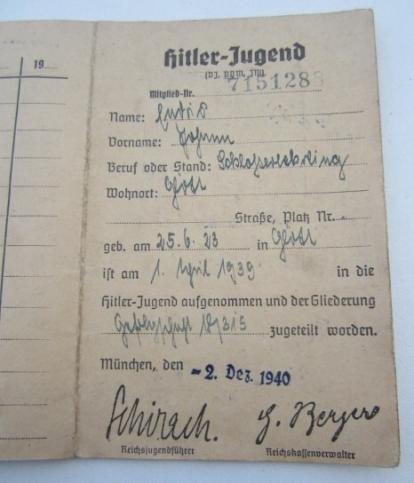 19
Hitler-Jugend
(DJ, BDM, JM)
Mitglied-Nr. 7151288
Name:
Vorname: Johann
Beruf oder Stand: Schlosserlehrling
Wohnort:
Straße, Platz Nr. -
geb. am 25. 6. 23 in
ist am 1. April 1939 in die
Hitler-Jugend aufgenommen und der Gliederung
Gefolgschaft 18/315 zugeteilt worden.
München, den - 2. Dez. 1940
Schirach. G. Berger
Reichsjugendführer Reichskassenverwalter